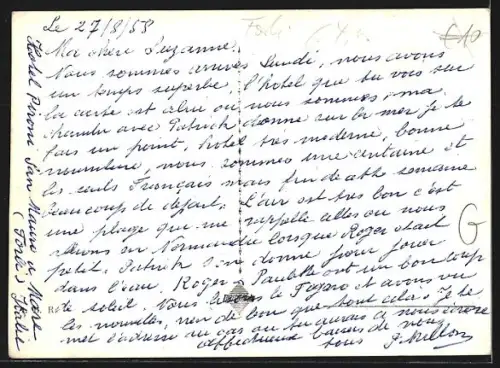 Le 27/8/58
Ma chère Suzanne,
Nous sommes arrivés Lundi, nous avons
un temps superbe, l'hotel que tu vois sur
la carte est celui où nous sommes, ma
chambre avec Patrick donne sur la mer, je te
fais un point, hotel très moderne, bonne
nourriture, nous sommes une centaine et
les seuls Français mais fin de cette semaine
beaucoup de départ. L'air est très bon c'est
une plage que me rappelle celles où nous
allions en Normandie lorsque Roger était
petit. Patrick s'en donne pour jouer
dans l'eau. Roger Paulette ont un bon coup
de soleil. Nous avons le Figaro et avons vu
les nouvelles, rien de bon que tout cela. Je te
met l'adresse au cas où tu aurais à nous écrire
affectueux baisers de nous
tous
Hotel Peroni San Mauro a Mare
(Forli) Italie
€10
G